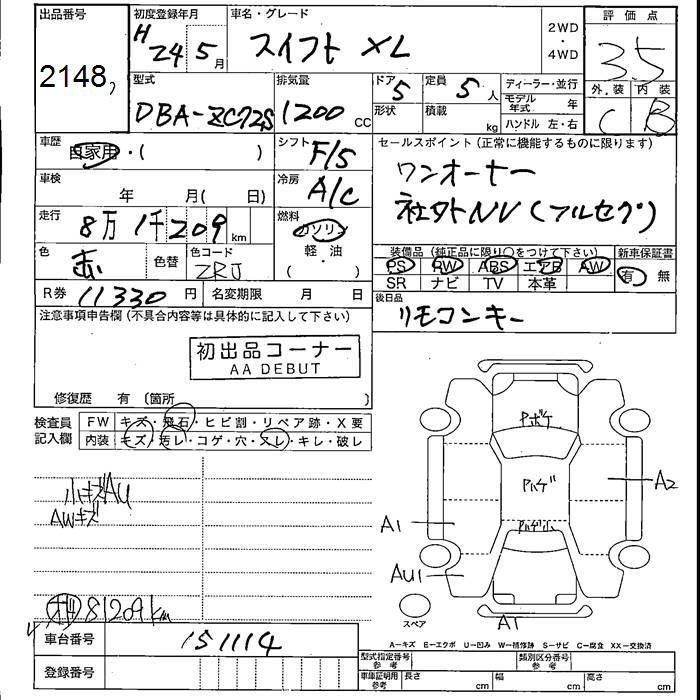 出品番号 初度登録年月 車名・グレード 評価点
2148 H 24 5月 スイフト XL 2WD・4WD 3.5
外装 内装
C B
型式 排気量 ドア 定員 ディーラー・並行
DBA-ZC72S 1200 CC 5 5人 モデル年式 年
形状 積載 kg ハンドル 左・右
車歴 シフト セールスポイント(正常に機能するものに限ります)
自家用・( ) F/5 ワンオーナー
車検 冷房 社外NV(フルセグ)
年 月( 日) A/C
走行 燃料
8万1千209km ガソリン
軽・油
( )
色 色替 色コード 装備品(純正品に限り○をつけて下さい) 新車保証書
赤 ZRJ PS PW ABS エアB AW 有 無
SR ナビ TV 本革
R券 11330円 名変期限 月 日 後日品
リモコンキー
注意事項申告欄(不具合内容等は具体的に記入して下さい)
初出品コーナー
AA DEBUT
修復歴 有 〔箇所 〕
検査員記入欄 FW キズ・飛石・ヒビ割・リペア跡・X要
内装 キズ・汚レ・コゲ・穴・スレ・キレ・破レ
小キズAU
AWキズ
81209km
Pボケ
Pハゲ
Pハゲ小
A2
A1
AU1
A1
スペア
A=キズ E=エクボ U=凹み W=補修跡 S=サビ C=腐食 XX=交換済
車台番号 151114
型式指定番号 参考 類別区分番号 参考
登録番号
車庫証明用 参考 長さ cm 幅 cm 高さ cm